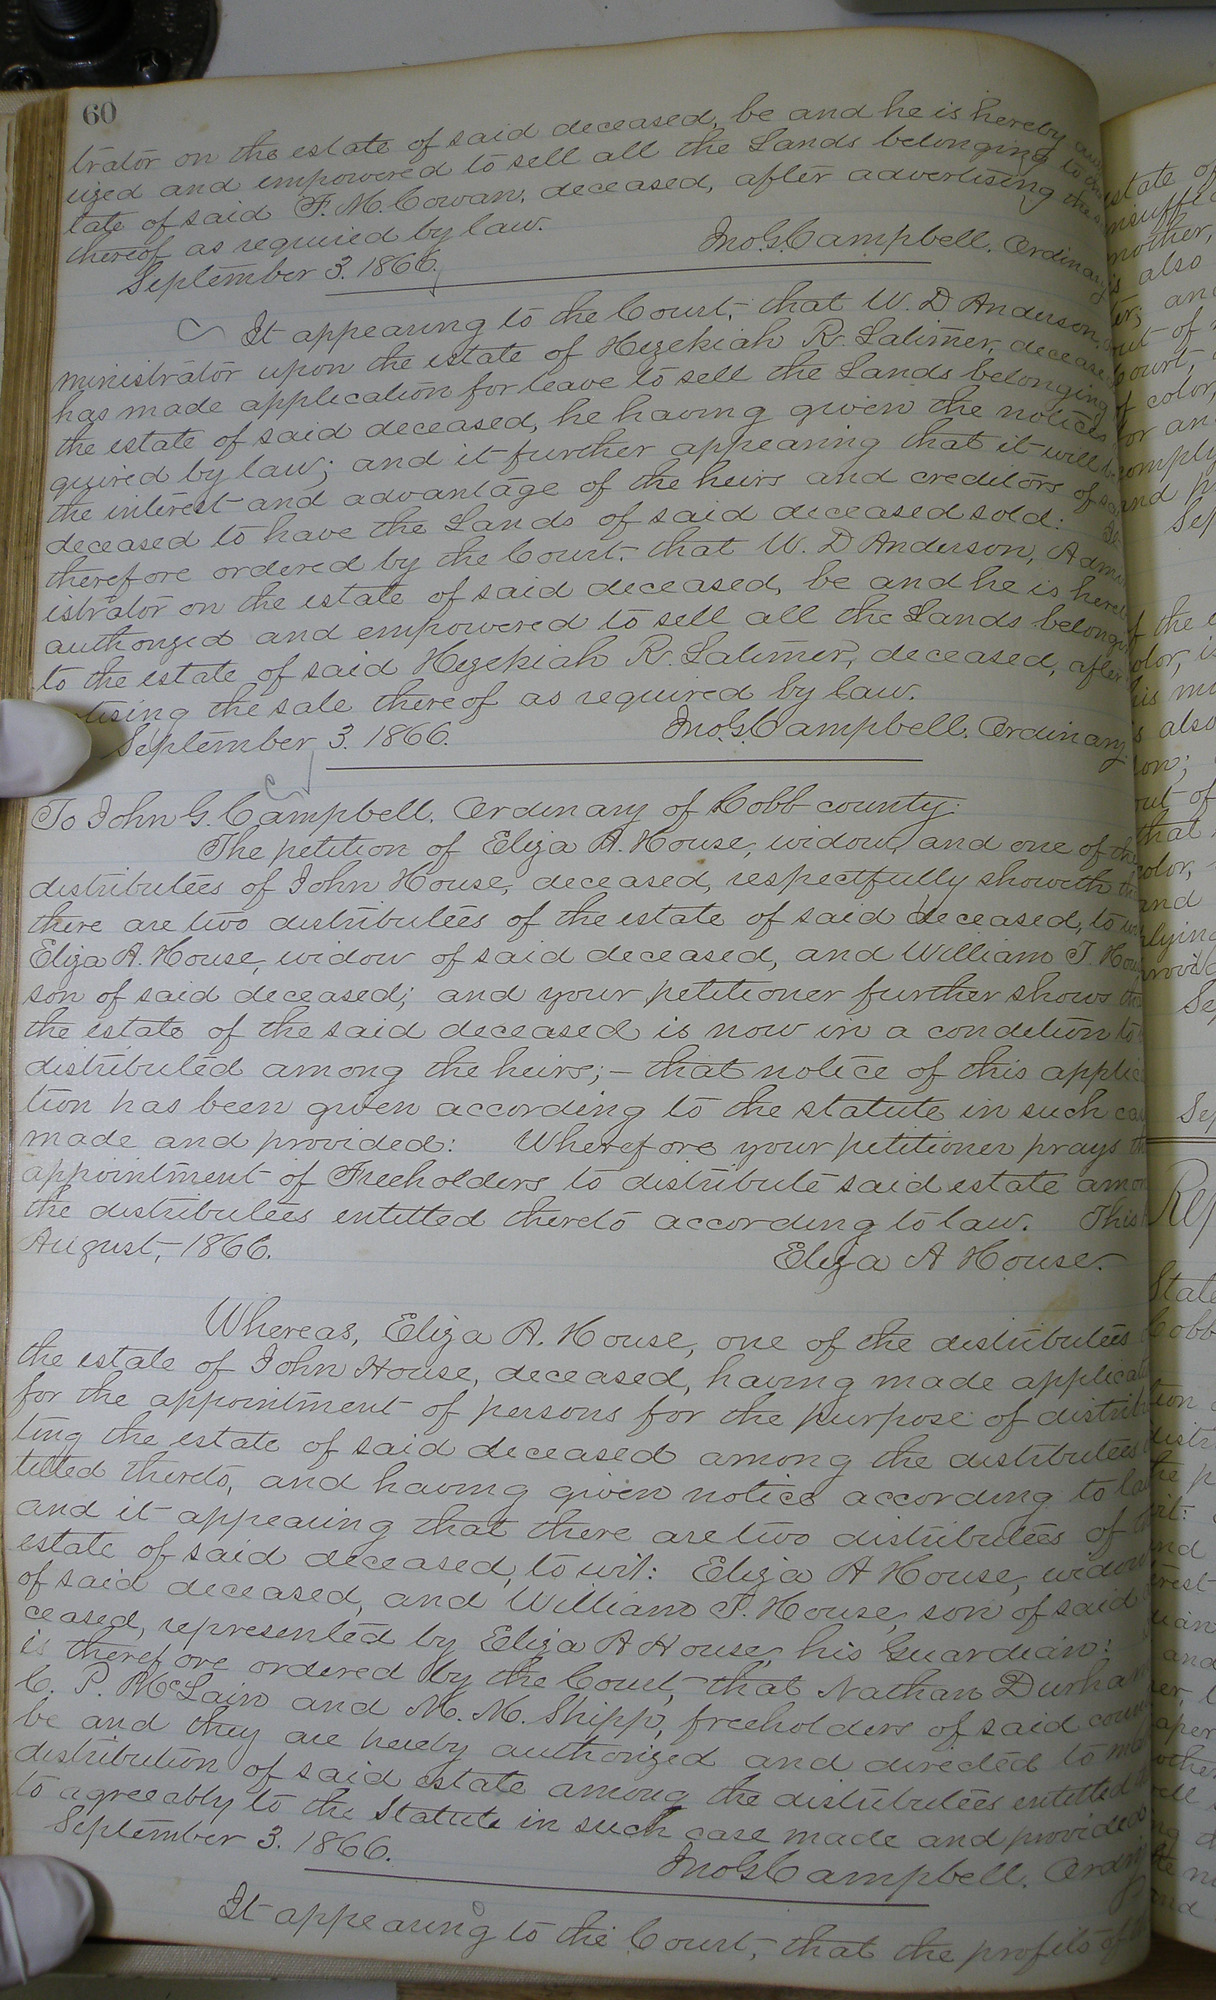 60
trator on the estate of said deceased, be and he is hereby
ized and empowered to sell all the Lands belonging to
tate of said F. M. Cowan, deceased, after advertising the
thereof as required by law.
Jno. G. Campbell. Ordinary
September 3. 1866.
It appearing to the Court, that W. D Anderson,
ministrator upon the estate of Hezekiah R. Latimer, deceased
has made application for leave to sell the Lands belonging
the estate of said deceased, he having given the notices
quired by law; and it further appearing that it will be
the interest and advantage of the heirs and creditors of
deceased to have the Lands of said deceased sold: It
therefore ordered by the Court, that W. D Anderson, Admin
istrator on the estate of said deceased, be and he is hereby
authorized and empowered to sell all the Lands belonging
to the estate of said Hezekiah R. Latimer, deceased, after
tising the sale thereof as required by law.
September 3. 1866. Jno. G. Campbell. Ordinary.
To John G. Campbell. Ordinary of Cobb county:
The petition of Eliza A. House, widow, and one of the
distributees of John House, deceased, respectfully showeth
there are two distributees of the estate of said deceased, to
Eliza A. House, widow of said deceased, and William T. Hou
son of said deceased; and your petitioner further shows
the estate of the said deceased is now in a condition to
distributed among the heirs;– that notice of this applic
tion has been given according to the statute in such ca
made and provided: Wherefore your petitioner prays the
appointment of Freeholders to distribute said estate amon
the distributees entitled thereto according to law. This
August, 1866.
Eliza A House.
Whereas, Eliza A. House, one of the distributees
the estate of John House, deceased, having made applicat
for the appointment of persons for the purpose of distrib
ting the estate of said deceased among the distributees
titled thereto, and having given notice according to law
and it appearing that there are two distributees of
estate of said deceased, to wit: Eliza A House, widow
of said deceased, and William T. House, son of said
ceased, represented by Eliza A House, his Guardian:
is therefore ordered by the Court, that Nathan Durham
C. P. McLain and M. M. Shipp, freeholders of said coun
be and they are hereby authorized and directed to ma
distribution of said estate among the distributees entitled
to agreeably to the Statute in such case made and provided
September 3. 1866.
Jno. G. Campbell. Ordin
It appearing to the Court, that the profits of